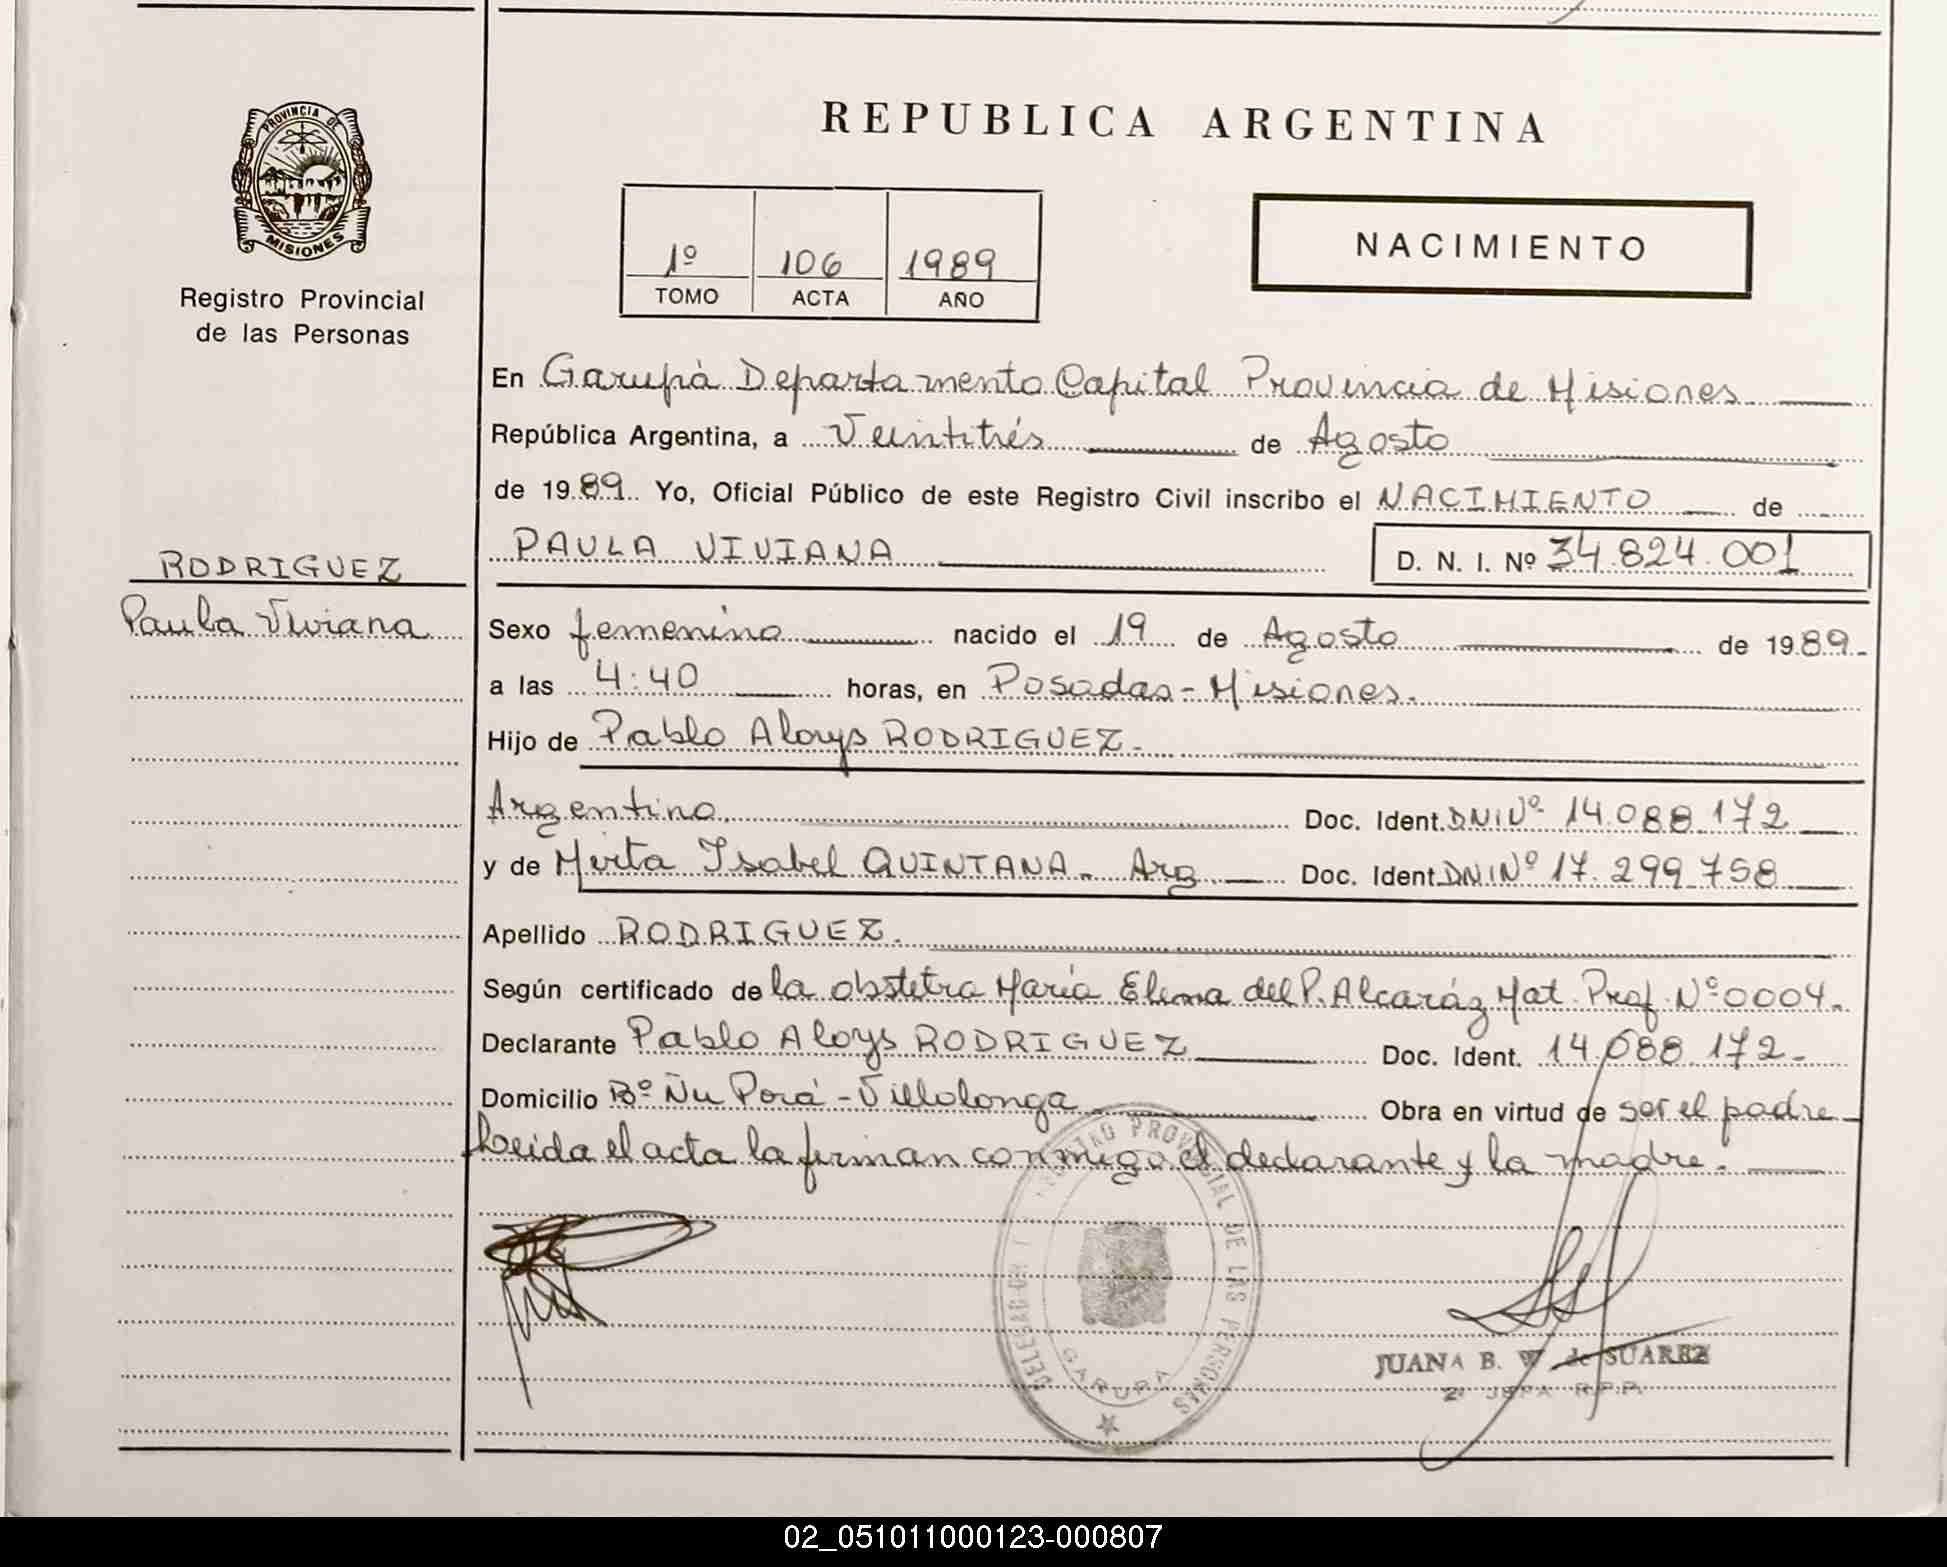 PROVINCIA DE
MISIONES
Registro Provincial
de las Personas
REPUBLICA ARGENTINA
1º 106 1989
TOMO ACTA AÑO
NACIMIENTO
En Garupà Departamento Capital Provincia de Misiones
República Argentina, a Veintitrés de Agosto
de 1989 Yo, Oficial Público de este Registro Civil inscribo el NACIMIENTO de
PAULA VIVIANA D. N. I. Nº 34.824.001
RODRIGUEZ
Paula Viviana
Sexo femenino nacido el 19 de Agosto de 1989.
a las 4:40 horas, en Posadas-Misiones.
Hijo de Pablo Aloys RODRIGUEZ.
Argentino. Doc. Ident. DNI Nº 14.088.172
y de Mirta Isabel QUINTANA. Arg. Doc. Ident. DNI Nº 17.299.758
Apellido RODRIGUEZ.
Según certificado de la obstetra María Elena del P. Alcaráz Mat. Prof. Nº 0004.
Declarante Pablo Aloys RODRIGUEZ Doc. Ident. 14.088.172.
Domicilio Bº Ñu Porá - Villalonga Obra en virtud de ser el padre
Leida el acta la firman conmigo el declarante y la madre.
REGISTRO PROVINCIAL DE LAS PERSONAS
DELEGACION
GARUPA
JUANA B. W. de SUAREZ
2ª JEFA R.P.P.
02_051011000123-000807